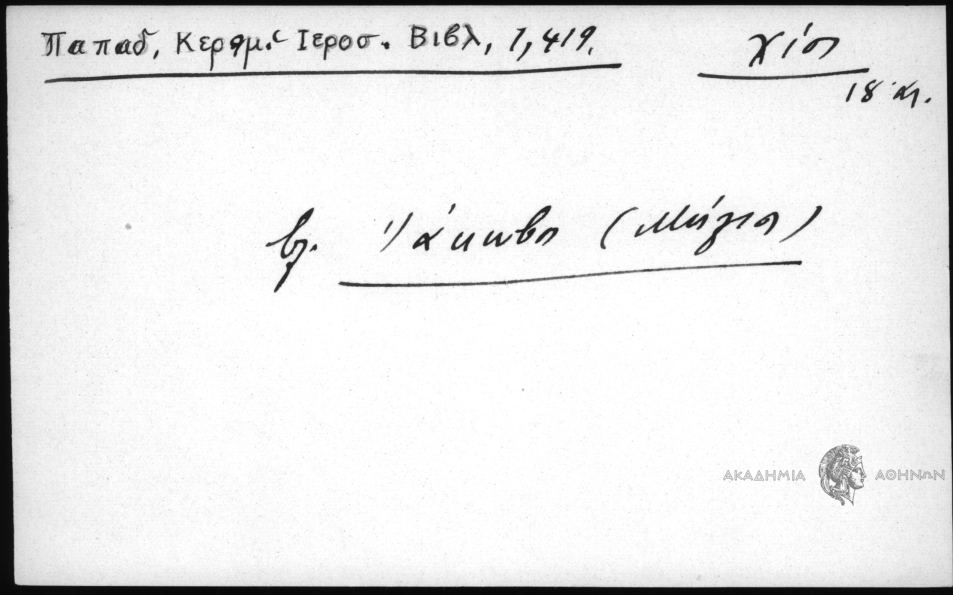 Παπαδ, Κεραμ. Ἱεροσ. Βιβλ, 1, 419. Χίος
18 αι.
βλ. Ἰάκωβος (Μάγιος)
ΑΚΑΔΗΜΙΑ ΑΘΗΝΩΝ